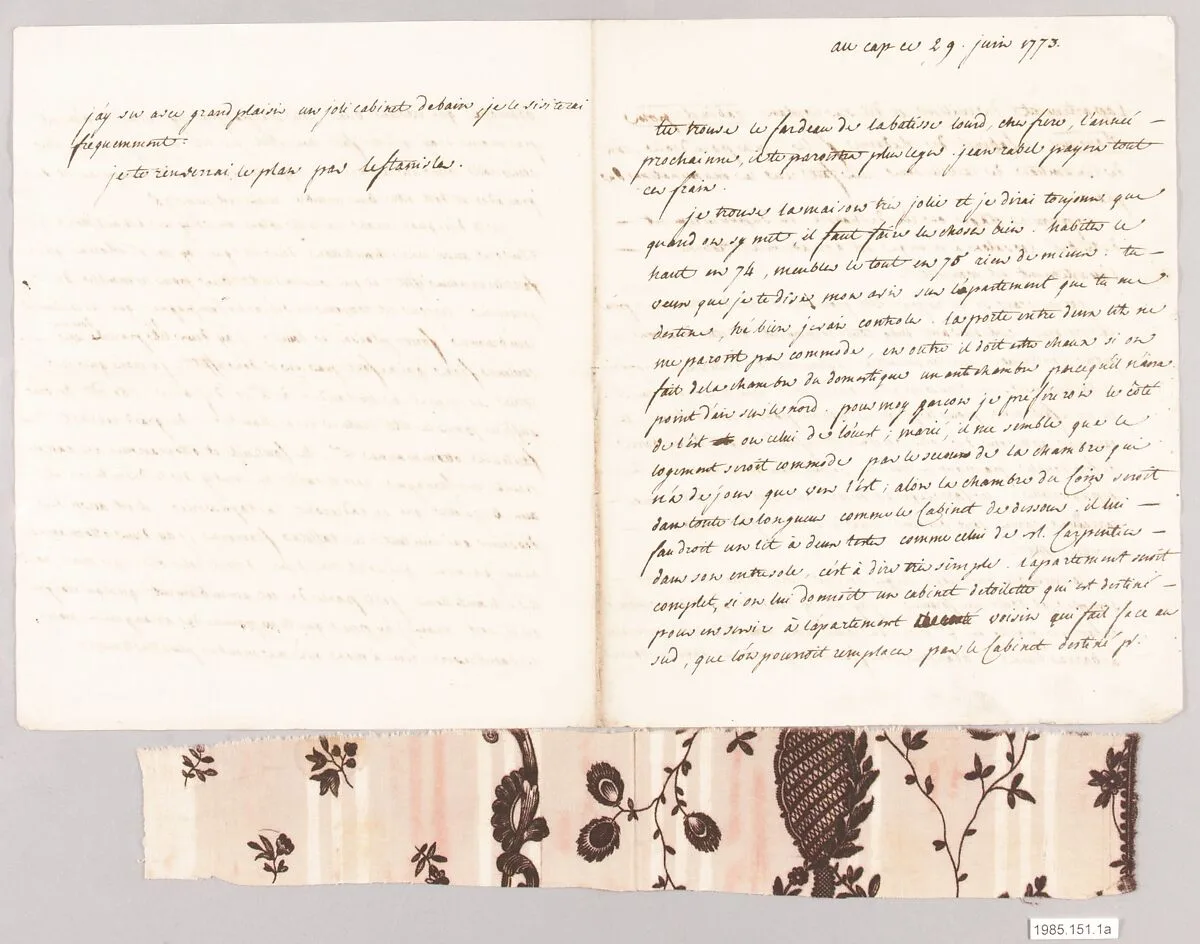 j'ay vu avec grand plaisir un joli cabinet de bain, je le visiterai
frequemment.
je te renverrai le plan par le stanislas.
au cap ce 29. juin 1773.
tu trouve le fardeau de la batisse lourd, cher frere, l'année
prochainne, il te paroitra plus leger. jean rabel payera tout
ces frais.
je trouve la maison tres jolie et je dirai toujours que
quand on s'y met, il faut faire les choses bien. habiter le
haut en 74, meubler le tout en 75 rien de mieux. tu
veux que je te dise mon avis sur l'apartement que tu me
destine, hé bien je vais controler. la porte entre deux lit ne
me paroit pas commode, en outre il doit etre chaux si on
fait de la chambre du domestique un antichambre parcequ'il n'aura
point d'air sur le nord. pour moy garçon je préférerois le côté
de l'est ou celui de l'ouest; marié, il me semble que le
logement seroit commode par le secours de la chambre qui
n'a de jour que vers l'est; alors la chambre du coin seroit
dans toute la longueur comme le cabinet de dessous. il lui
faudroit un lit à deux testes comme celui de M. Carpentier
dans son entresole, c'est à dire tres simple. l'apartement seroit
complet, si on lui donnoit un cabinet de toilette qui est destiné
pour en servir à l'apartement voisin qui fait face au
sud, que l'on pourroit remplacer par le cabinet destiné pr.
1985.151.1a